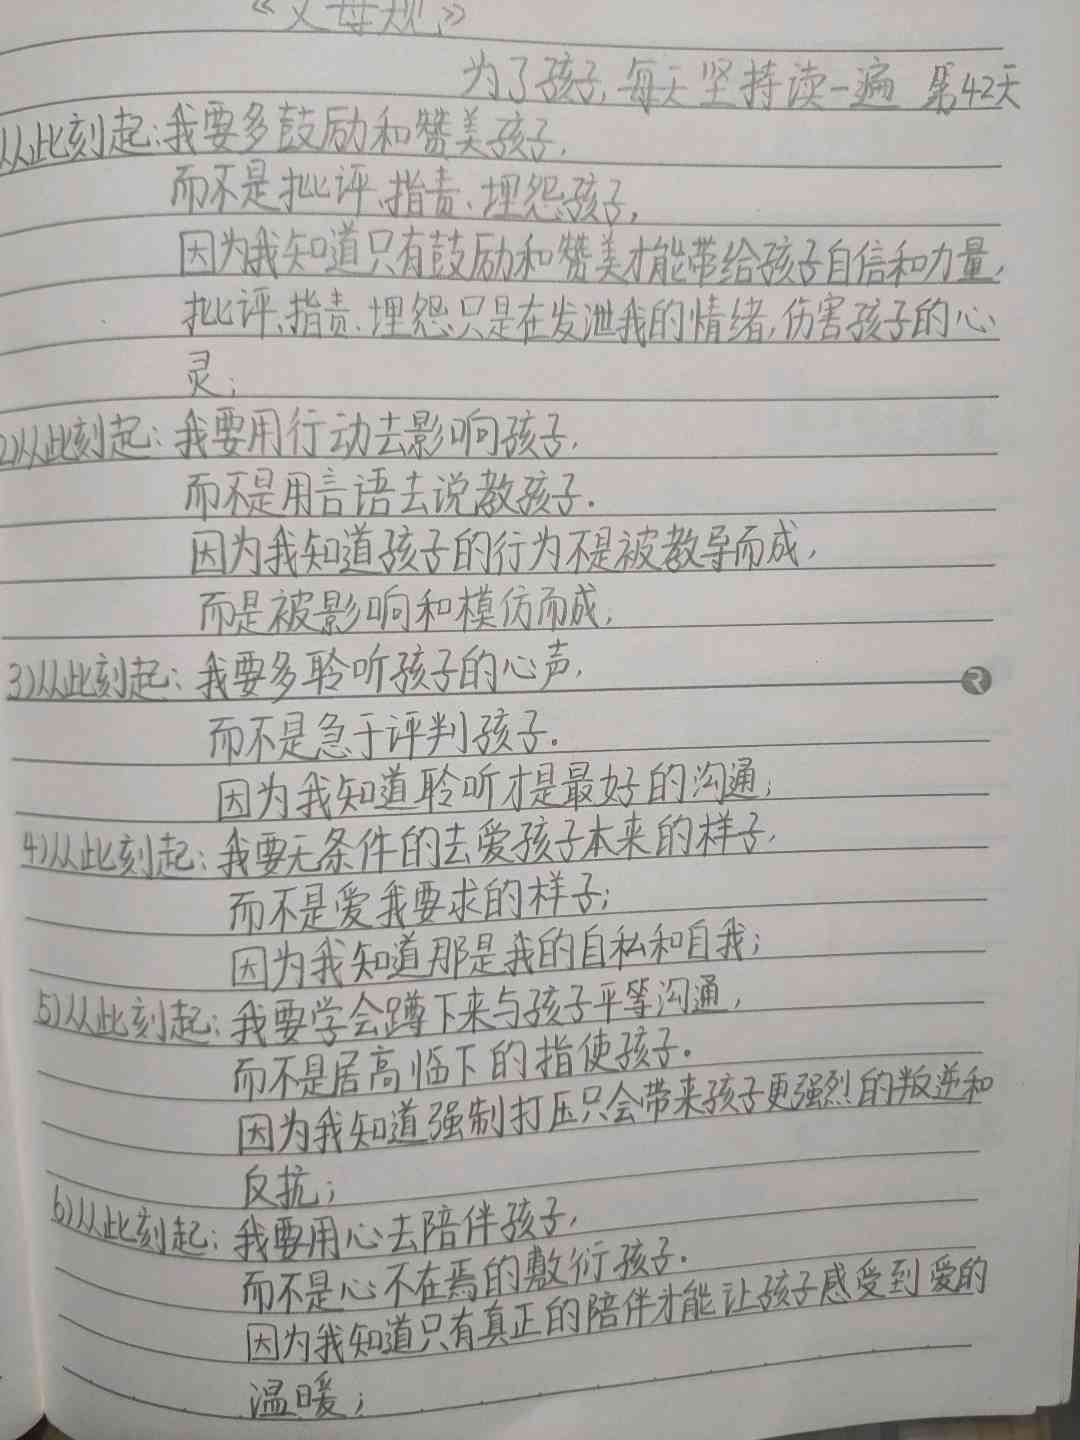 《父母规》
为了孩子,每天坚持读一遍 第42天
从此刻起:我要多鼓励和赞美孩子,
而不是批评、指责、埋怨孩子,
因为我知道只有鼓励和赞美才能带给孩子自信和力量,
批评、指责、埋怨只是在发泄我的情绪,伤害孩子的心
灵;
2)从此刻起:我要用行动去影响孩子,
而不是用言语去说教孩子.
因为我知道孩子的行为不是被教导而成,
而是被影响和模仿而成,
3)从此刻起:我要多聆听孩子的心声,
而不是急于评判孩子。
因为我知道聆听才是最好的沟通;
4)从此刻起:我要无条件的去爱孩子本来的样子,
而不是爱我要求的样子;
因为我知道那是我的自私和自我;
5)从此刻起:我要学会蹲下来与孩子平等沟通,
而不是居高临下的指使孩子.
因为我知道强制打压只会带来孩子更强烈的叛逆和
反抗;
6)从此刻起:我要用心去陪伴孩子,
而不是心不在焉的敷衍孩子.
因为我知道只有真正的陪伴才能让孩子感受到爱的
温暖;